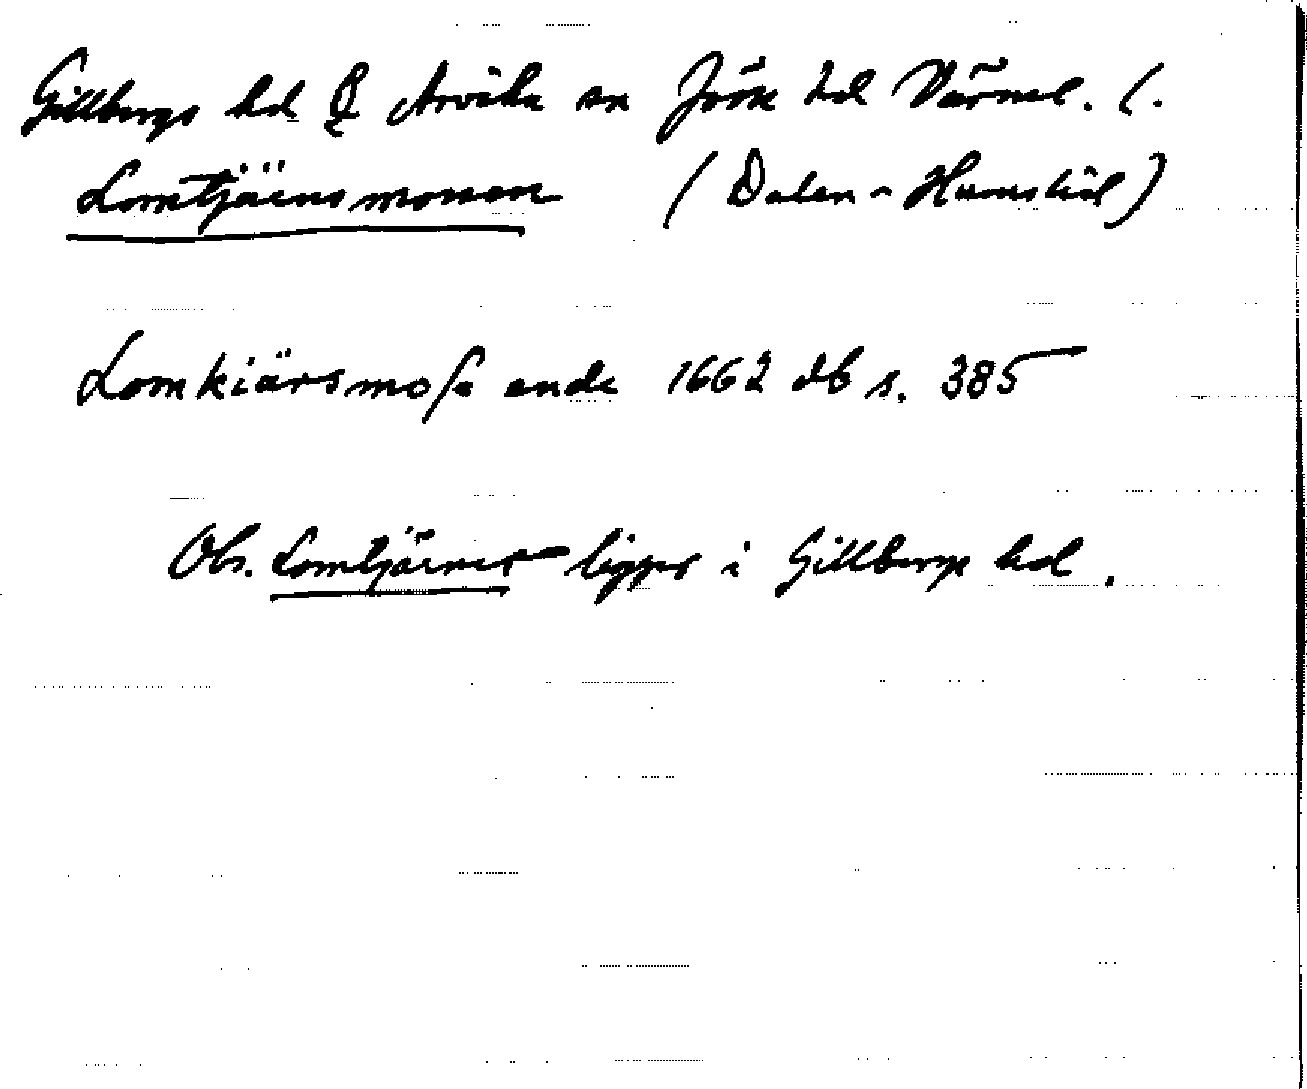 Gillbergs hd & Arvika sn Jösse hd Värml. l.
Lomtjärnsmossen (Dalen - Humskål)
Lomkiärsmosse ende 1662 db s. 385
Obs. Lomtjärnet ligger i Gillbergs hd.